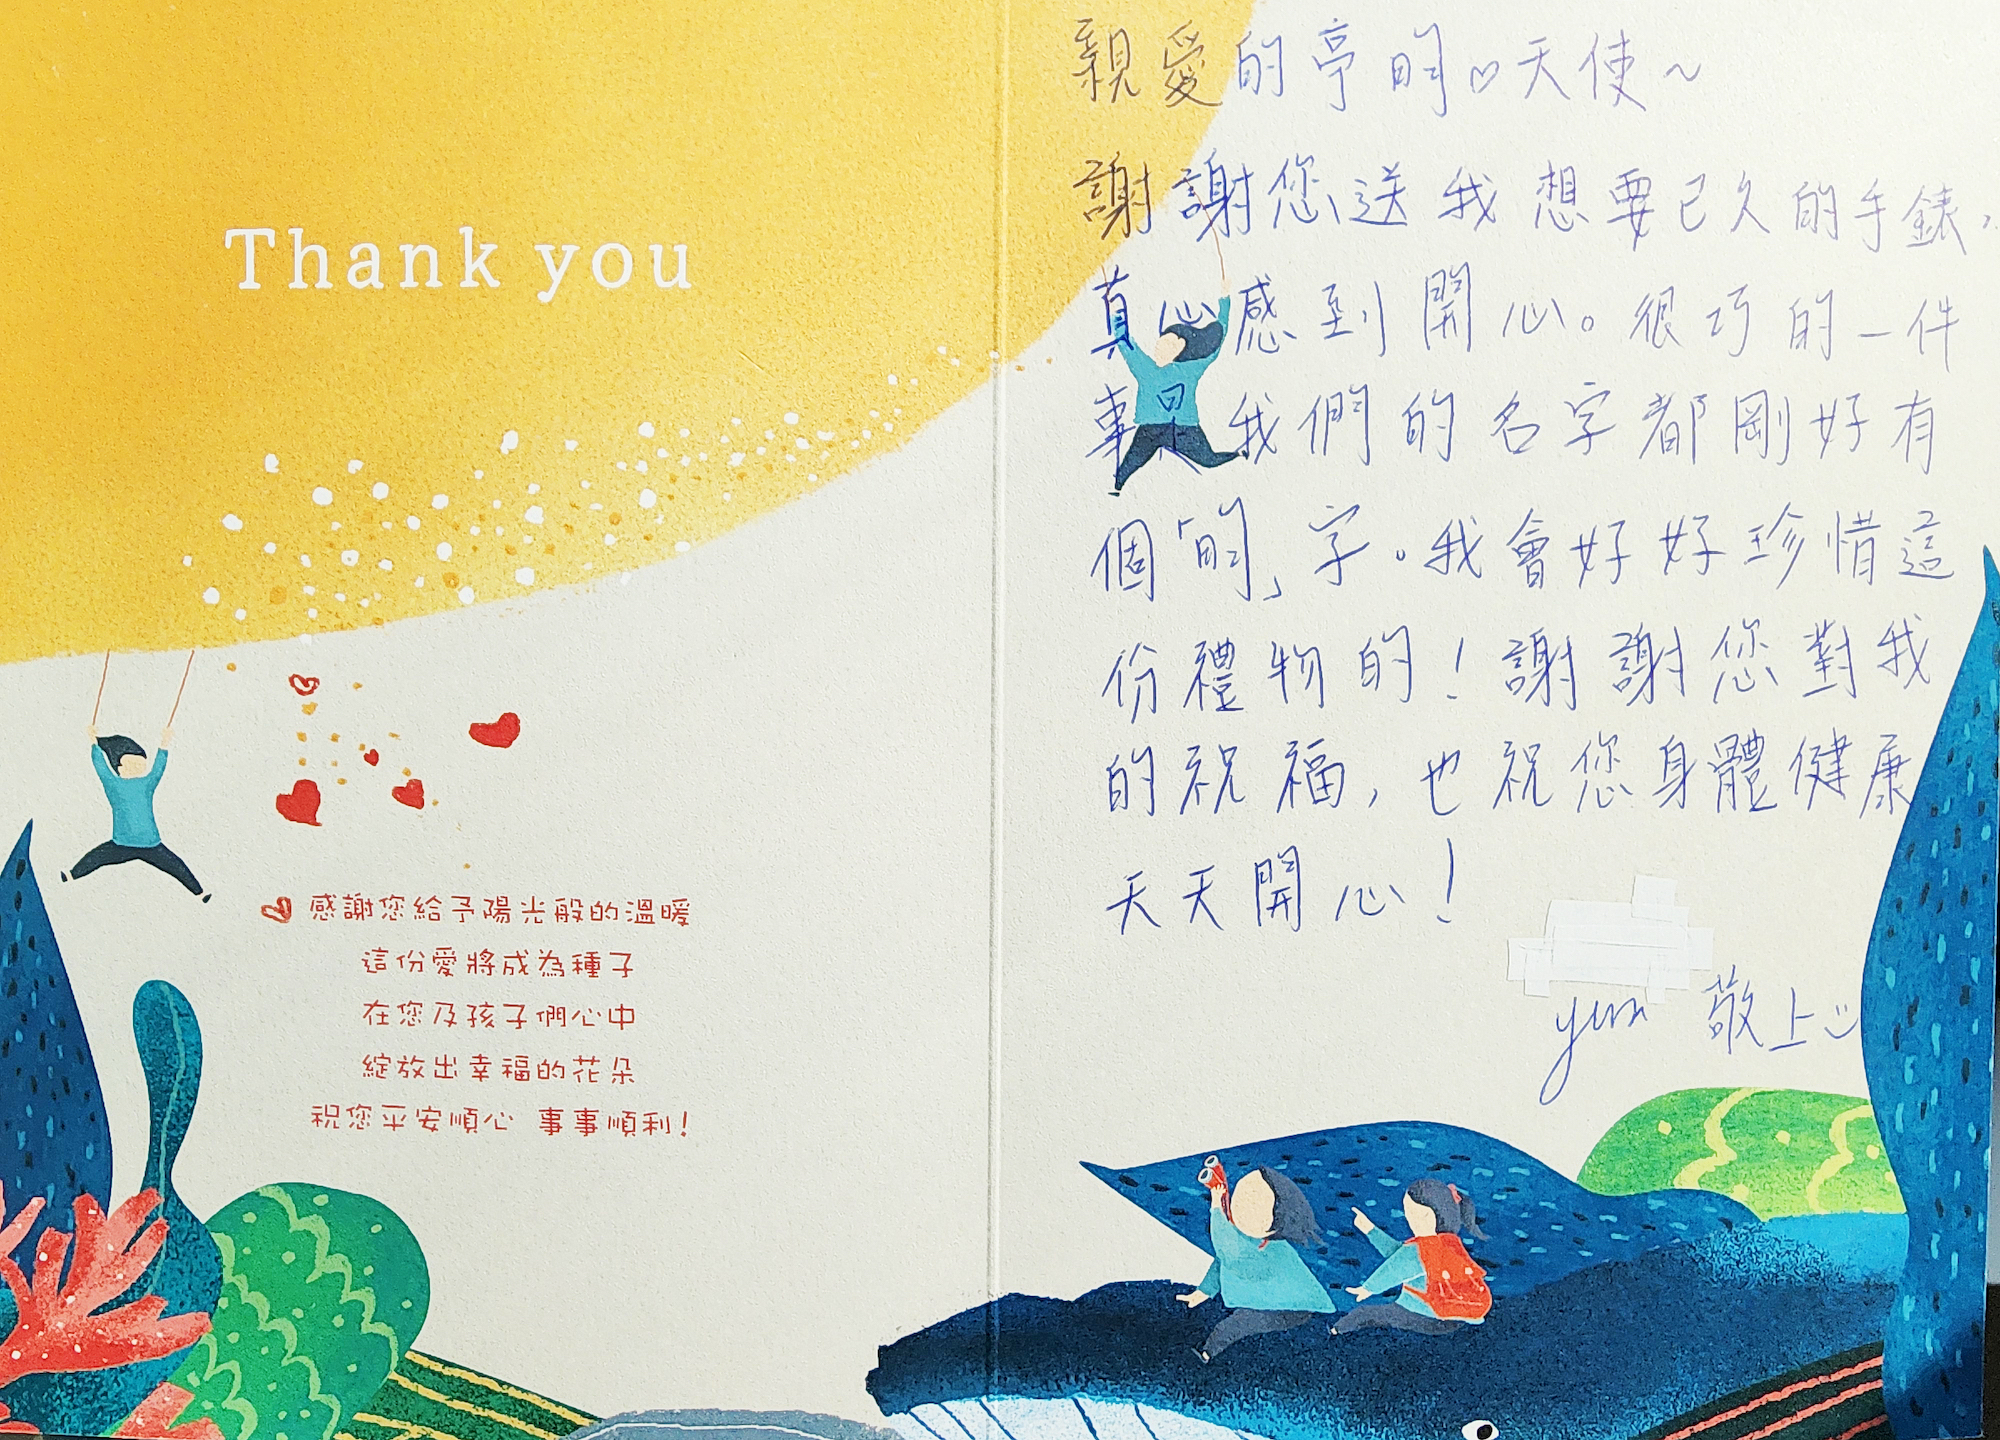 Thank you
感謝您給予陽光般的溫暖
這份愛將成為種子
在您及孩子們心中
綻放出幸福的花朵
祝您平安順心 事事順利!
親愛的亭昀♡天使~
謝謝您送我想要已久的手錶,
真心感到開心。很巧的一件
事是我們的名字都剛好有
個「昀」字。我會好好珍惜這
份禮物的!謝謝您對我
的祝福,也祝您身體健康
天天開心!
yun 敬上